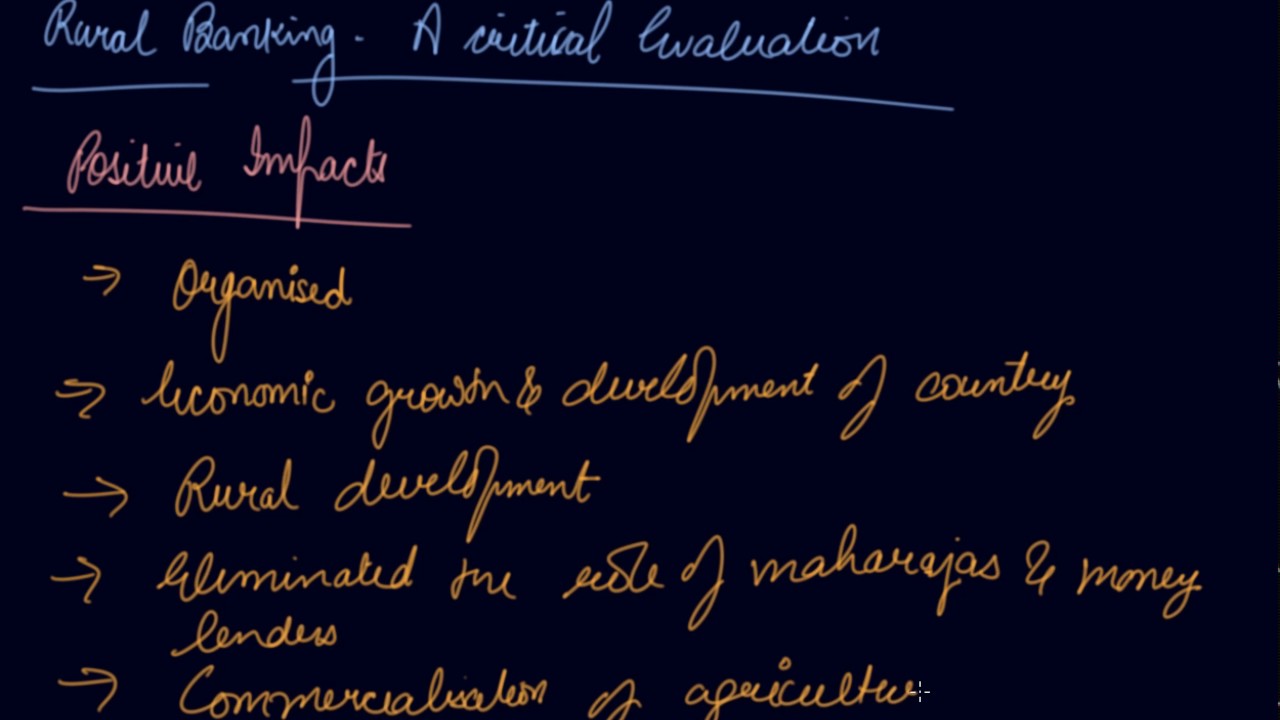 Rural Banking - A critical Evaluation
Positive Impacts
→ Organised
→ Economic growth & development of country
→ Rural development
→ Eliminated the role of maharajas & money
lenders
→ Commercialisation of agricultu